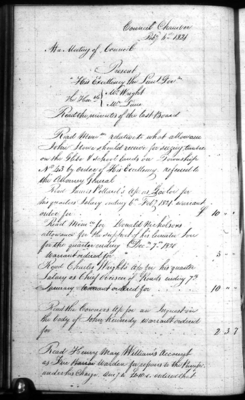 Council Chamber
Feby 6th 1851
At a Meeting of Council
Present
His Excellency The Lieut Govr
The Honble Mr Wright
Mr Lima
Read the minutes of the last Board
Read Memo relative to what allowance
John should receive for seizing timber
on the Glebe & School lands on Township
No 53 by order of His Excellency referred to
the Attorney General
Read James Pollard's Ap as Gaoler for
his quarters Salary ending 6th Feby 1851 warrant
order for £ 10 " "
Read Memo for Donald Nicholson's
allowance for the support of his Sister Law
for the quarter ending
Warrant ordered for 5
Read Charles Wright's Ap for his quarter
Salary as Chief of Roads ending 7th
January warrant ordered for 10 " "
Read the Coroners Ap for an Inquest on
the body of John Kennedy warrant ordered
for 2 3 7
Read Henry May Williams Account
as Fire Warden for repairs to the Pumps
under his charge ordered that